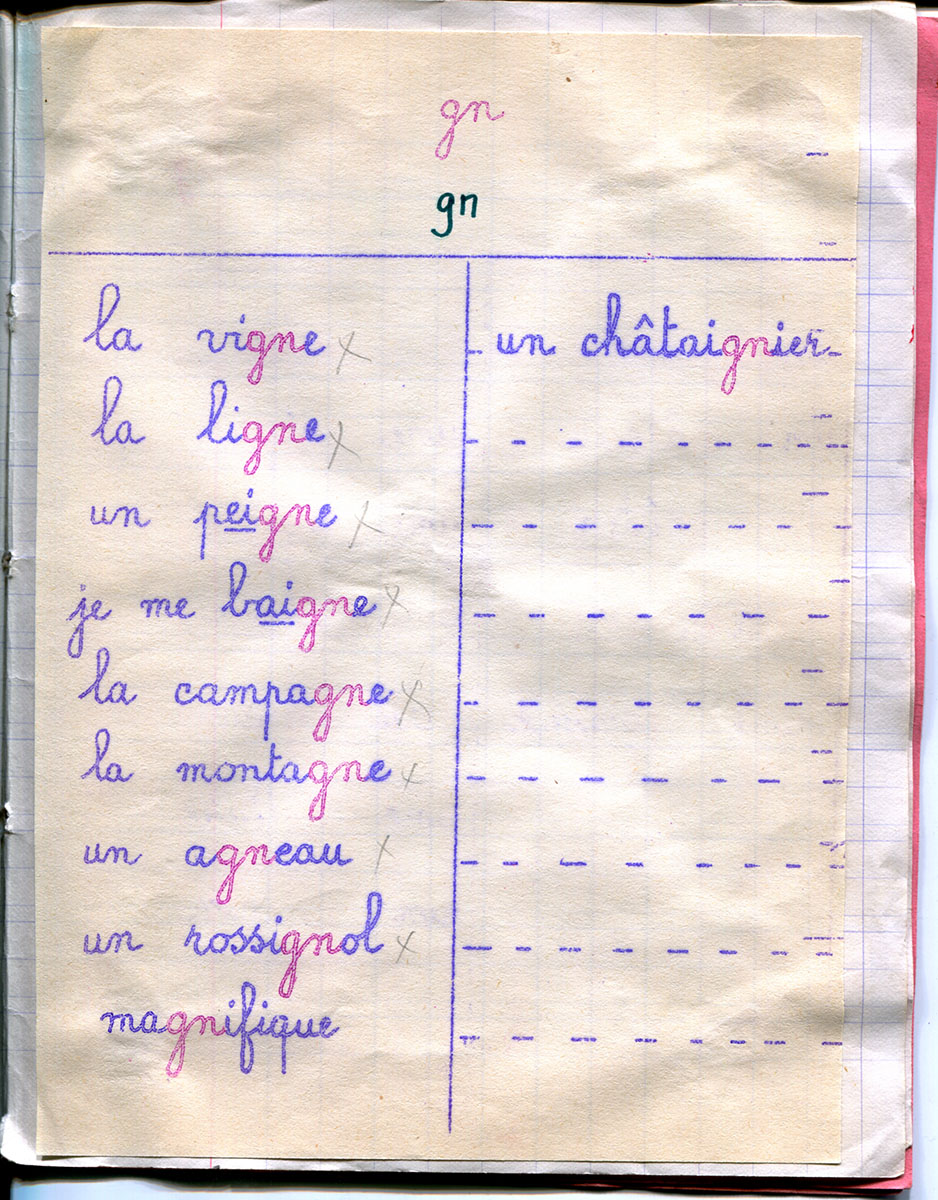 gn
gn
la vigne
un châtaignier
la ligne
un peigne
je me baigne
la campagne
la montagne
un agneau
un rossignol
magnifique